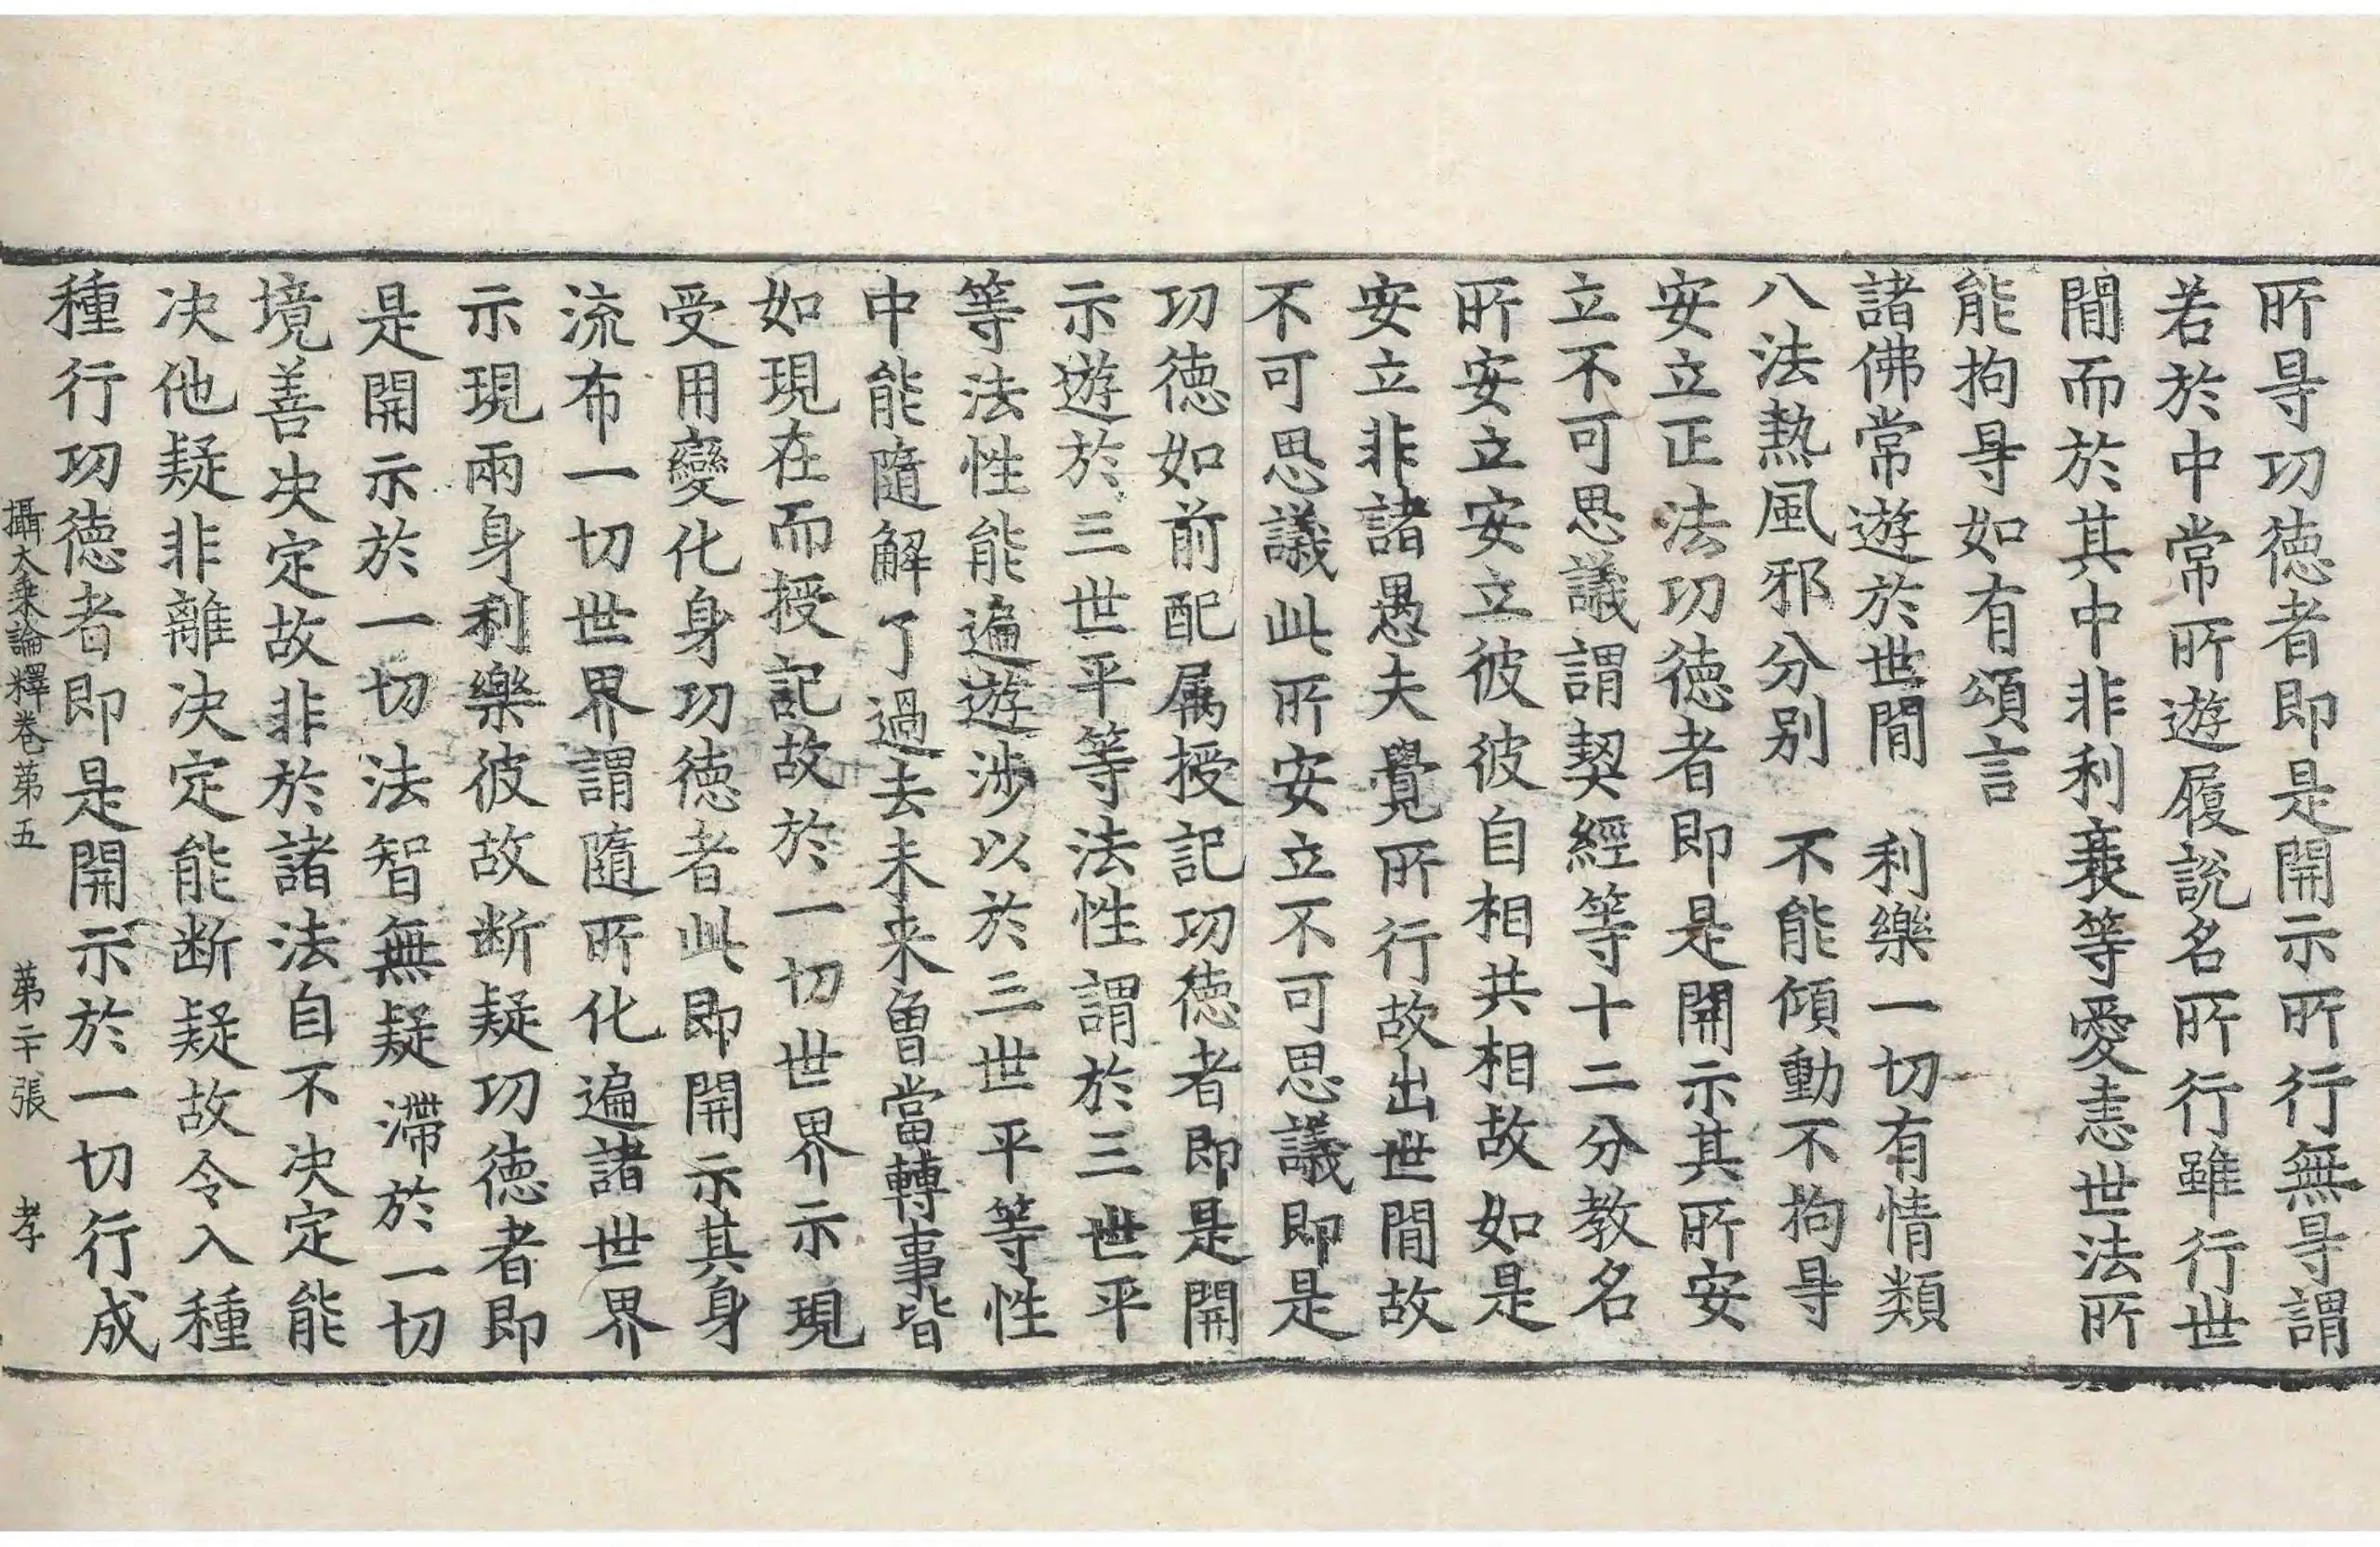 所㝵功徳者即是開示所行無㝵謂
若於中常所遊履說名所行雖行世
間而於其中非利襄等愛恚世法所
能拘㝵如有頌言
諸佛常遊於世間　利樂一切有情類
八法熱風邪分別　不能傾動不拘㝵
安立正法功徳者即是開示其所安
立不可思議謂契經等十二分教名
所安立安立彼彼自相共相故如是
安立非諸愚夫覺所行故出世間故
不可思議此所安立不可思議即是
功徳如前配属授記功徳者即是開
示遊於三世平等法性謂於三世平
等法性能遍遊涉以於三世平等性
中能隨解了過去未来曾當轉事皆
如現在而授記故於一切世界示現
受用變化身功徳者此即開示其身
流布一切世界謂隨所化遍諸世界
示現兩身利樂彼故断疑功徳者即
是開示於一切法智無疑滯於一切
境善决定故非於諸法自不决定能
决他疑非離决定能断疑故令入種
種行功徳者即是開示於一切行成
攝大乗論釋卷第五　第二十張　孝